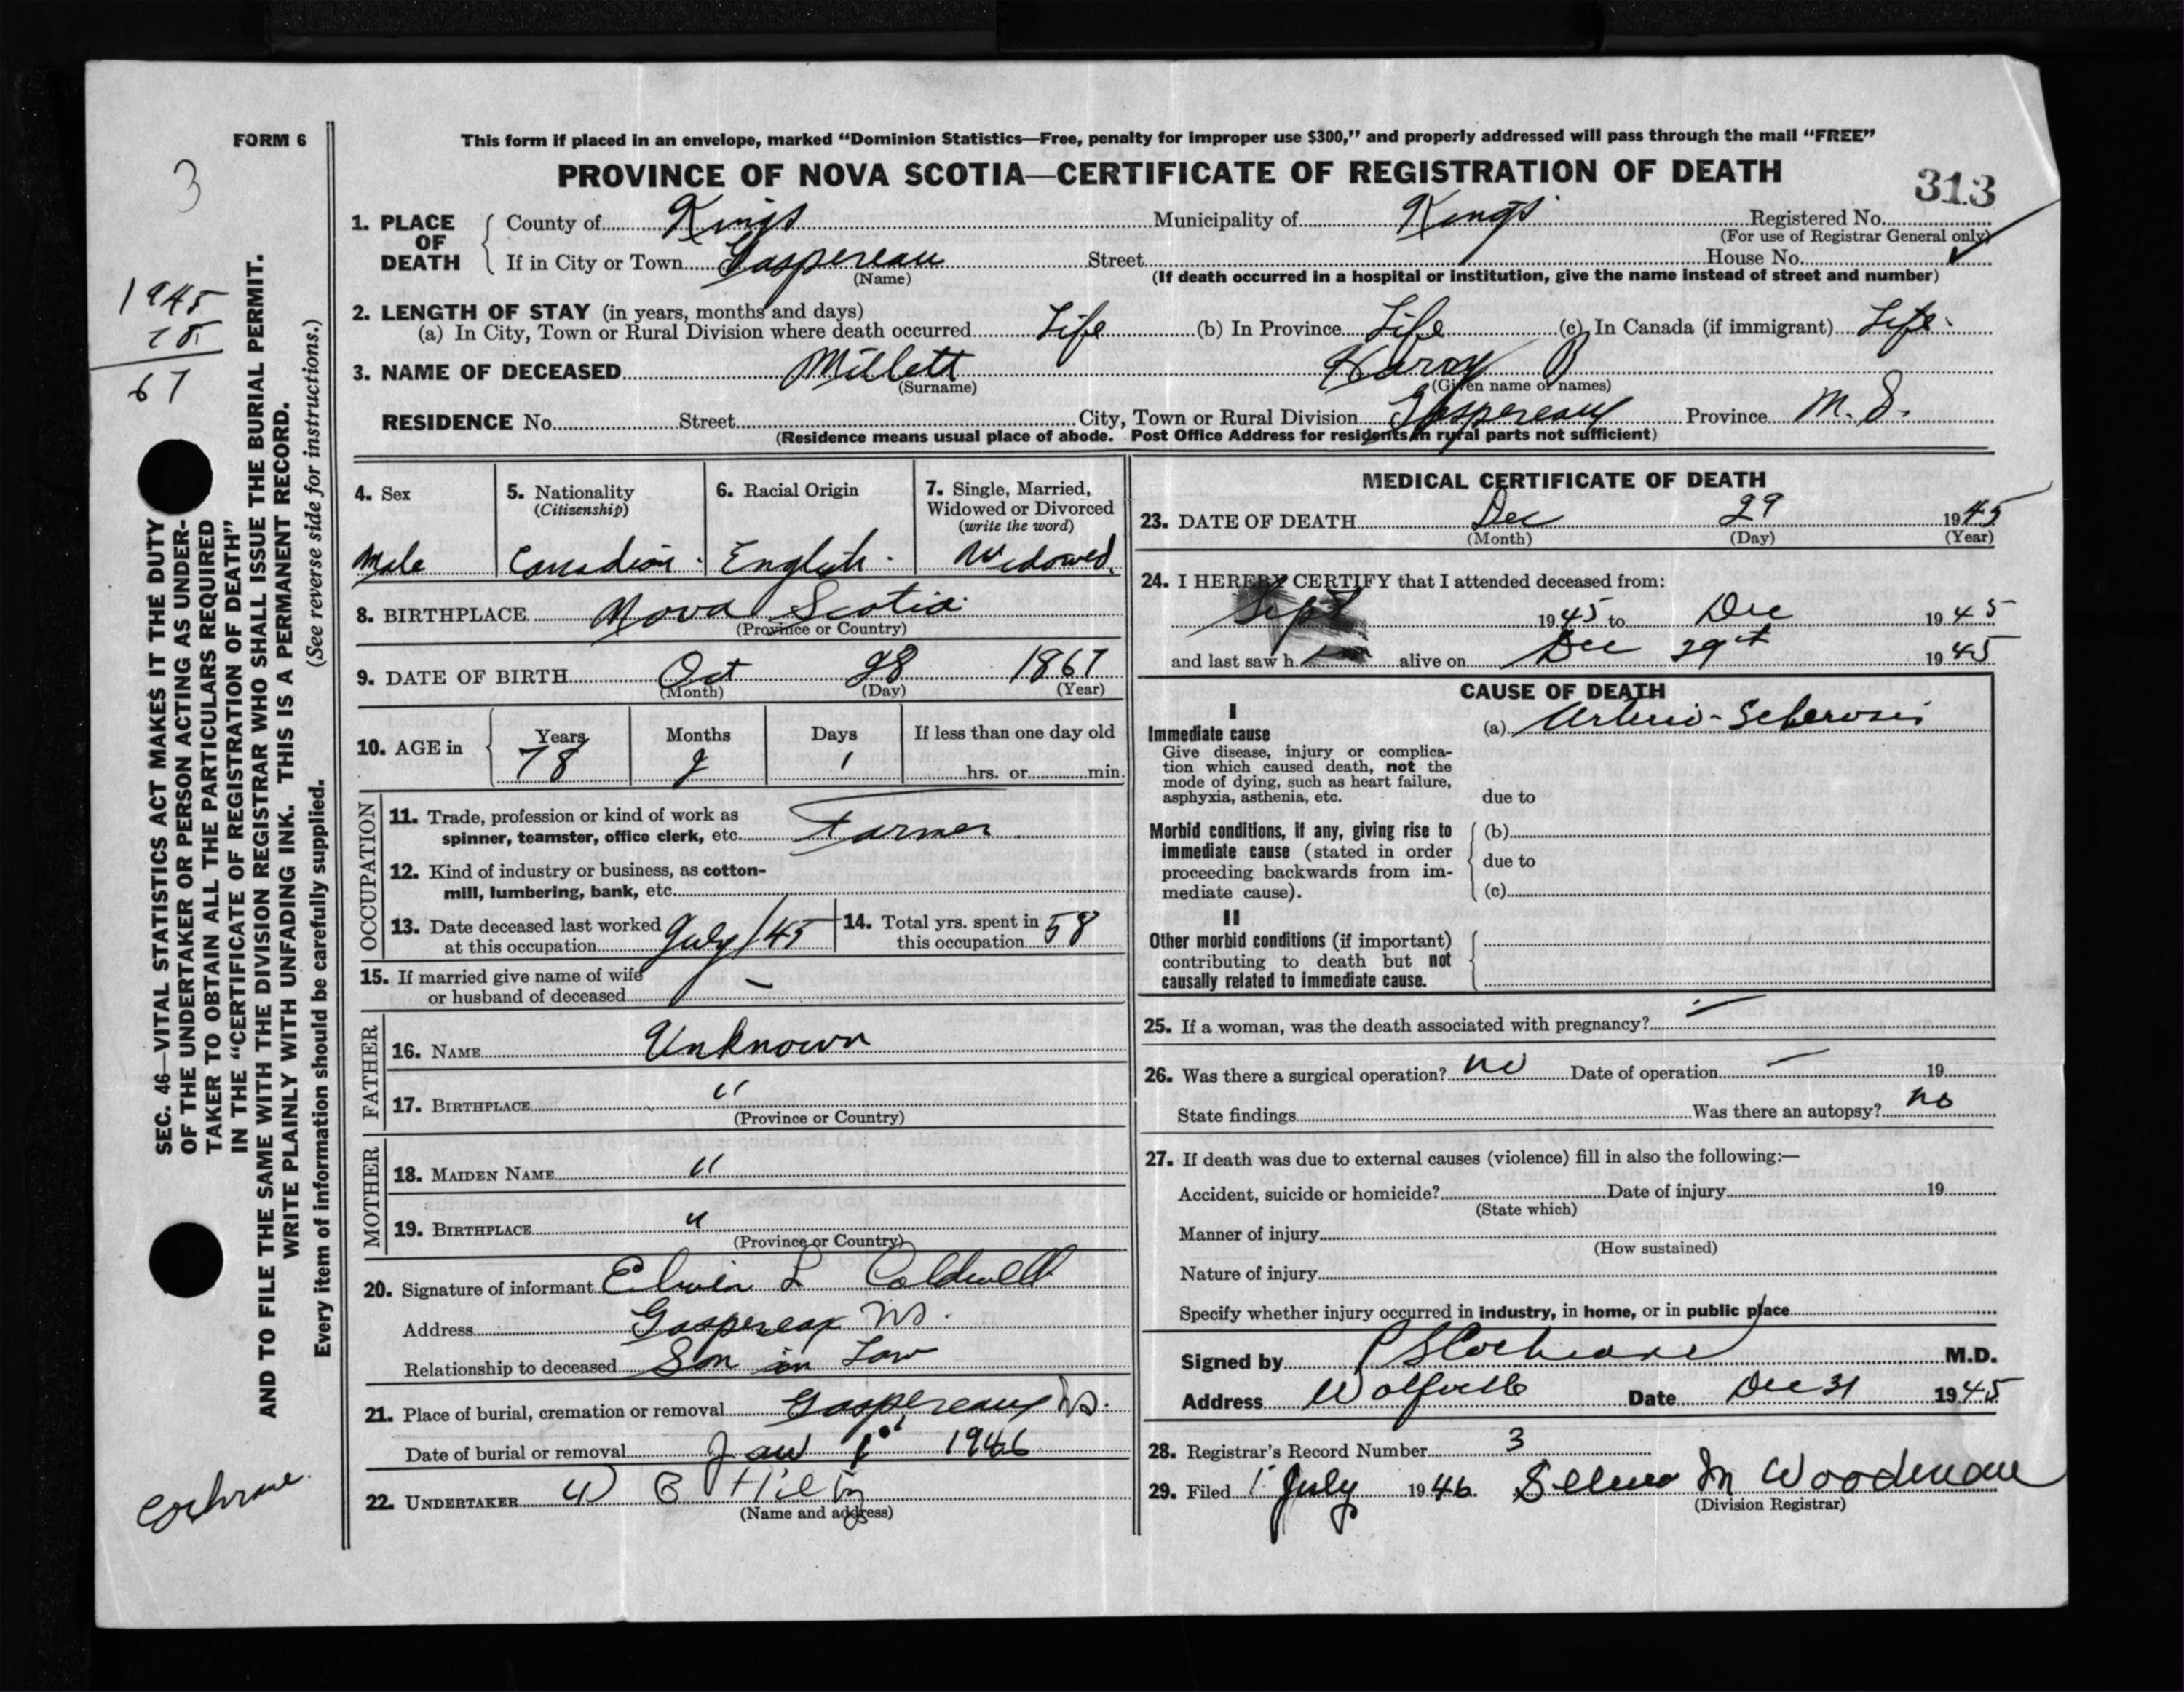 FORM 6
This form if placed in an envelope, marked “Dominion Statistics—Free, penalty for improper use $300,” and properly addressed will pass through the mail “FREE”
PROVINCE OF NOVA SCOTIA—CERTIFICATE OF REGISTRATION OF DEATH
313
3
1945
78
67
Cochrane.
SEC. 46—VITAL STATISTICS ACT MAKES IT THE DUTY
OF THE UNDERTAKER OR PERSON ACTING AS UNDER-
TAKER TO OBTAIN ALL THE PARTICULARS REQUIRED
IN THE “CERTIFICATE OF REGISTRATION OF DEATH”
AND TO FILE THE SAME WITH THE DIVISION REGISTRAR WHO SHALL ISSUE THE BURIAL PERMIT.
WRITE PLAINLY WITH UNFADING INK. THIS IS A PERMANENT RECORD.
Every item of information should be carefully supplied. (See reverse side for instructions.)
1. PLACE OF DEATH County of Kings Municipality of Kings Registered No.
(For use of Registrar General only)
If in City or Town Gaspereau Street House No.
(Name) (If death occurred in a hospital or institution, give the name instead of street and number)
2. LENGTH OF STAY (in years, months and days)
(a) In City, Town or Rural Division where death occurred Life (b) In Province Life (c) In Canada (if immigrant) Life.
3. NAME OF DECEASED Millett Harry B
(Surname) (Given name or names)
RESIDENCE No. Street City, Town or Rural Division Gaspereaux Province N. S.
(Residence means usual place of abode. Post Office Address for residents in rural parts not sufficient)
4. Sex
Male
5. Nationality
(Citizenship)
Canadian.
6. Racial Origin
English.
7. Single, Married,
Widowed or Divorced
(write the word)
Widowed.
8. BIRTHPLACE Nova Scotia
(Province or Country)
9. DATE OF BIRTH Oct 28 1867
(Month) (Day) (Year)
10. AGE in Years Months Days If less than one day old
78 2 1 hrs. or min.
OCCUPATION
11. Trade, profession or kind of work as
spinner, teamster, office clerk, etc. Farmer
12. Kind of industry or business, as cotton-
mill, lumbering, bank, etc.
13. Date deceased last worked
at this occupation July/45
14. Total yrs. spent in
this occupation 58
15. If married give name of wife
or husband of deceased —
FATHER
16. NAME Unknown
17. BIRTHPLACE "
(Province or Country)
MOTHER
18. MAIDEN NAME "
19. BIRTHPLACE "
(Province or Country)
20. Signature of informant Elwin L Coldwell
Address Gaspereax NS.
Relationship to deceased Son in Law
21. Place of burial, cremation or removal Gaspereaux NS.
Date of burial or removal Jan 1st 1946
22. UNDERTAKER W C Hiltz
(Name and address)
MEDICAL CERTIFICATE OF DEATH
23. DATE OF DEATH Dec 29 1945
(Month) (Day) (Year)
24. I HEREBY CERTIFY that I attended deceased from:
Sept 1945 to Dec 1945
and last saw him alive on Dec 29th 1945
CAUSE OF DEATH
I
Immediate cause
Give disease, injury or complica-
tion which caused death, not the
mode of dying, such as heart failure,
asphyxia, asthenia, etc.
(a) Arterio-Sclerosis
due to
Morbid conditions, if any, giving rise to
immediate cause (stated in order
proceeding backwards from im-
mediate cause).
(b)
due to
(c)
II
Other morbid conditions (if important)
contributing to death but not
causally related to immediate cause.
25. If a woman, was the death associated with pregnancy? —
26. Was there a surgical operation? no Date of operation — 19
State findings Was there an autopsy? no
27. If death was due to external causes (violence) fill in also the following:—
Accident, suicide or homicide? Date of injury 19
(State which)
Manner of injury
(How sustained)
Nature of injury
Specify whether injury occurred in industry, in home, or in public place
Signed by Cochrane M.D.
Address Wolfville Date Dec 31 1945
28. Registrar's Record Number 3
29. Filed 1 July 1946. M Woodman
(Division Registrar)